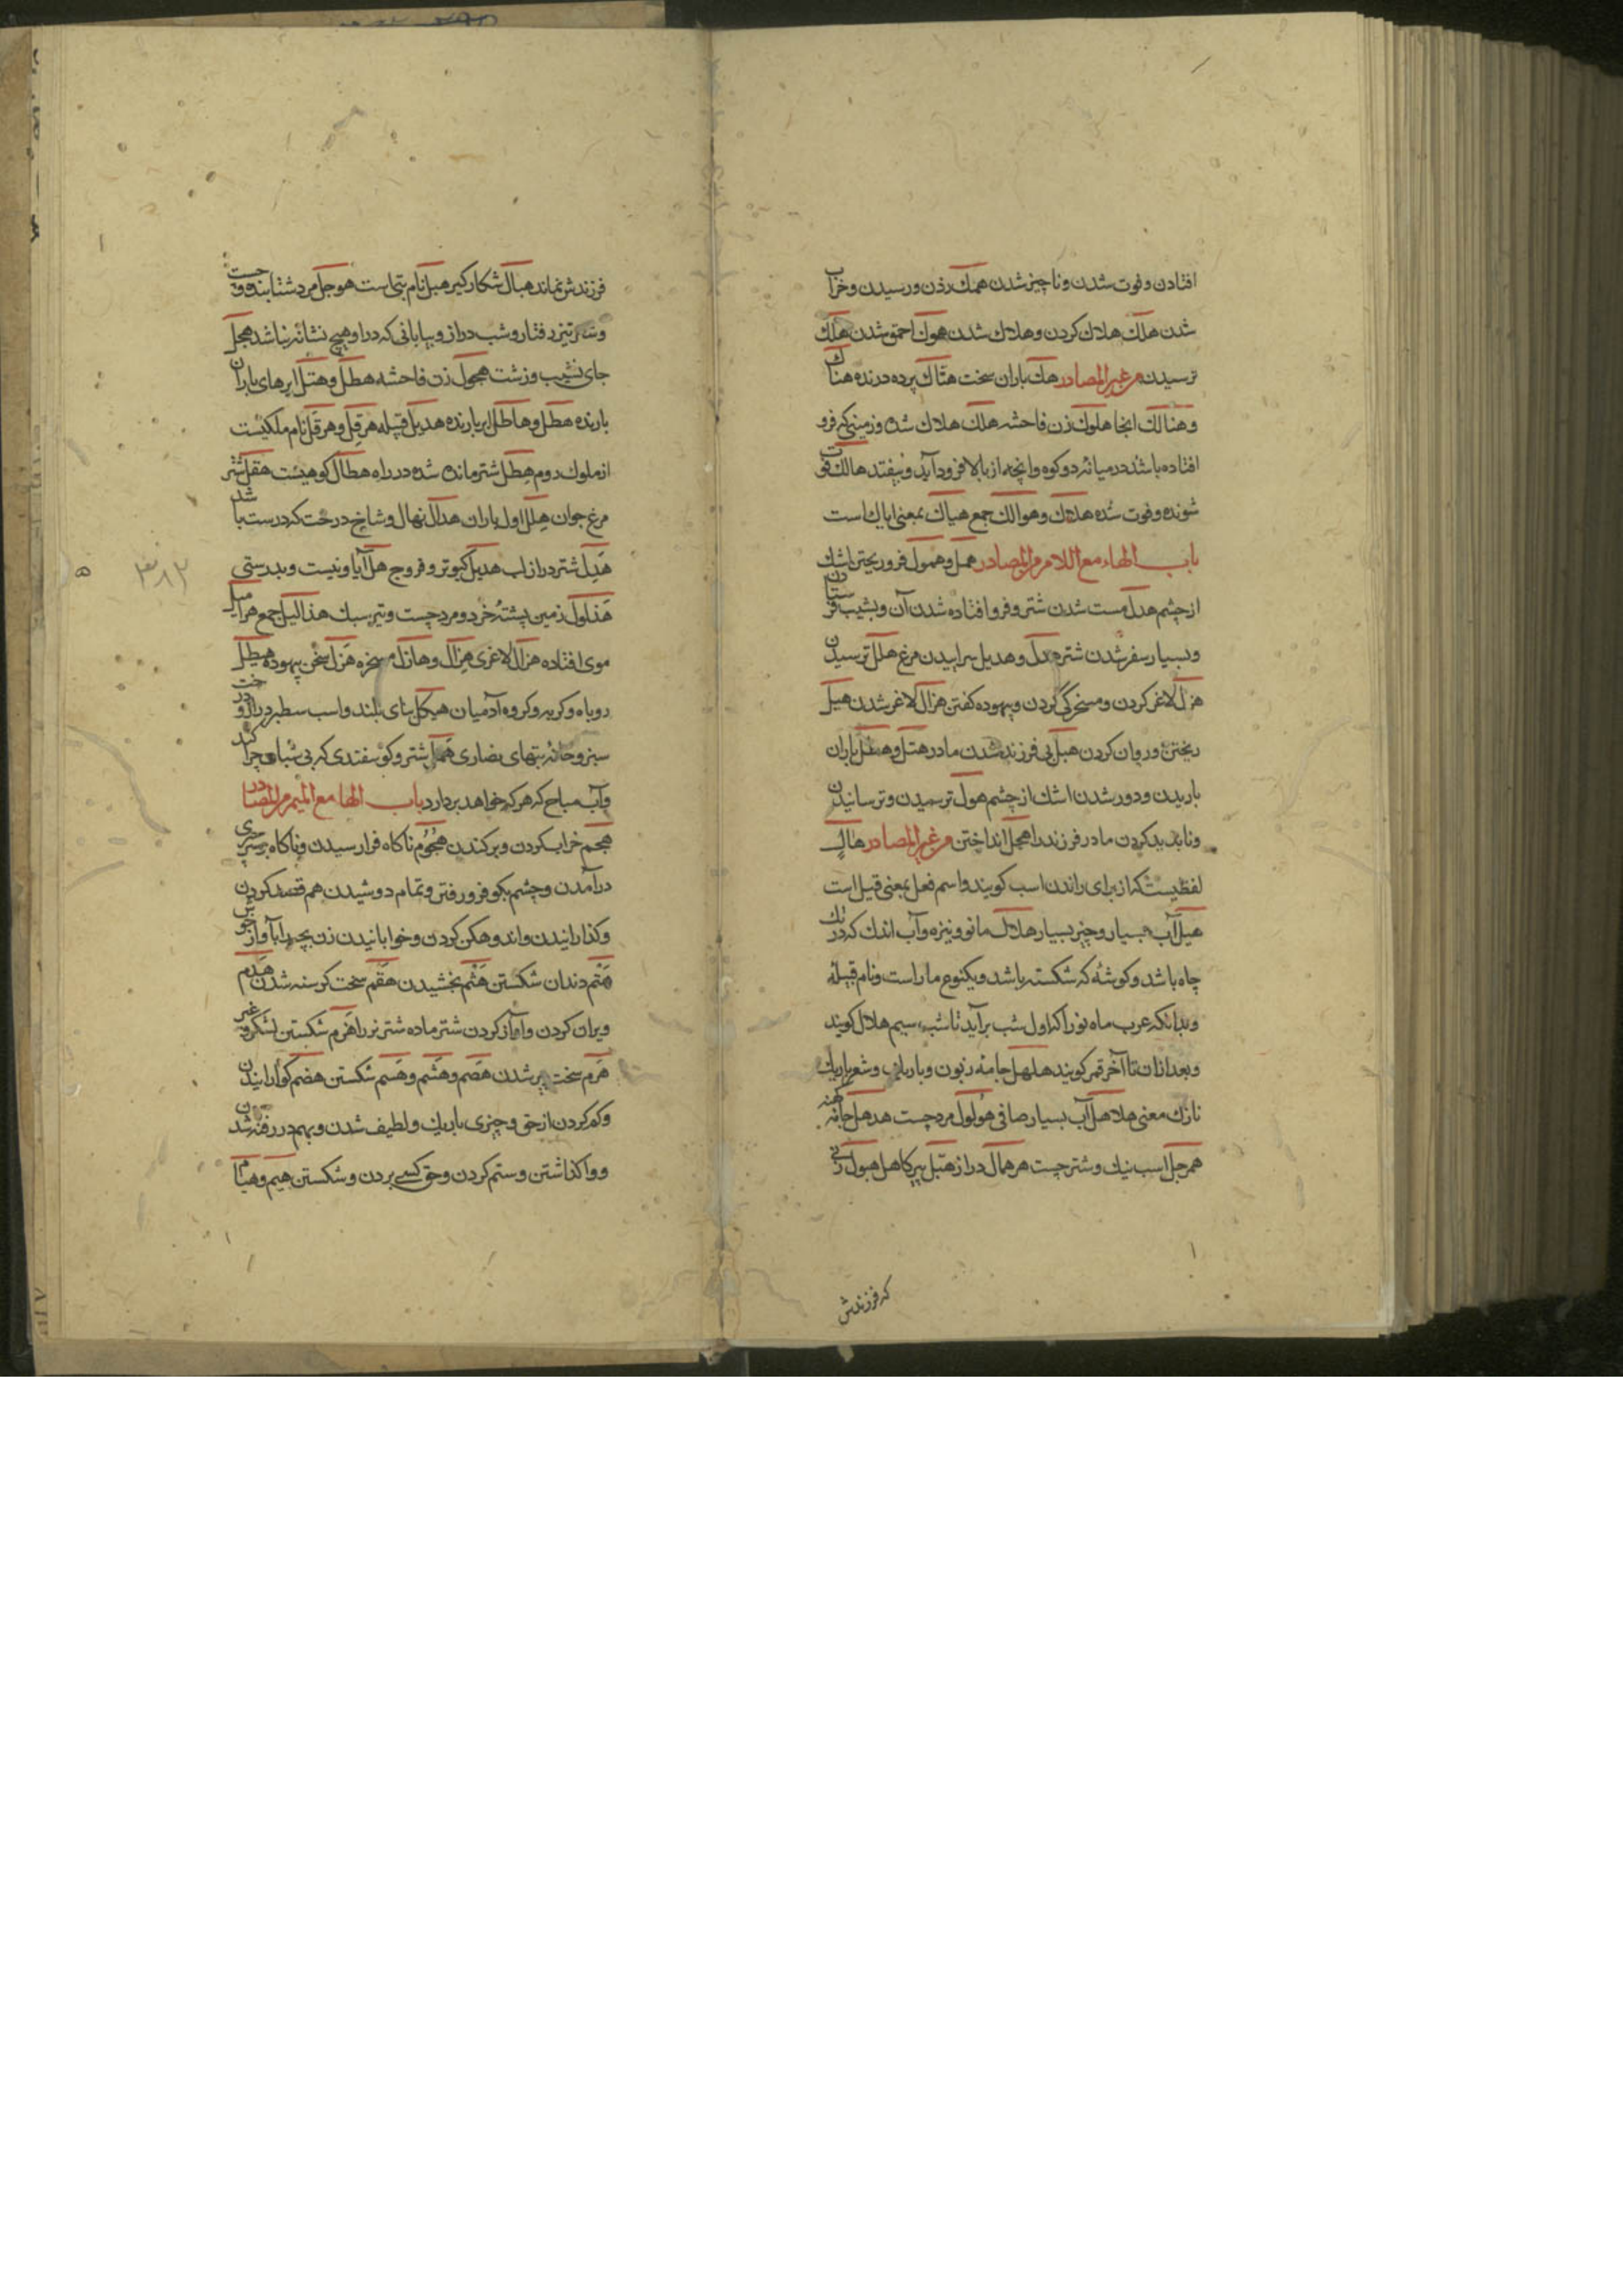 افتادن و فوت شدن و ناچیز شدن همك زدن و رسیدن و خراب
شدن هلك هلاك كردن و هلاك شدن هوك احمق شدن هلك
ترسیدن من غیر المصادر هك باران سخت هتاك پرده درنده هناك
و هنالك انجا هلوك زن فاحشه هلك هلاك شده و زمینی كه فرو
افتاده باشد در میانه دو كوه و انچه از بالا فرود آید و بیفتد هالك فوت
شونده و فوت شده هلاك و هوالك جمع هیاك بمعنی ایاك است
باب الهاء مع اللام من المصادر همل و همول فرو ریختن اشك
از چشم هدل مست شدن شتر و فرو افتاده شدن آن و بشیب فرستادن
و بسیار سفر شدن شتر هدل و هدیل سراییدن مرغ هلل ترسیدن
هزل لاغر كردن و مسخرگی كردن و بیهوده كفتن هزال لاغر شدن هیل
ریختن و روان كردن هبل بی فرزند شدن مادر هتل و هطل باران
باریدن و دور شدن اشك از چشم هول ترسیدن و ترسانیدن
و ناپدید كردن مادر فرزند را هجل انداختن من غیر المصادر هال
لفظیست كه از برای راندن اسب كویند و اسم فعل بمعنی قیل است
هیل آب بسیار و چیز بسیار هلال ماه نو و نیزه و آب اندك كه در تك
چاه باشد و كوشهٔ كه شكسته باشد و یكنوع مار است و نام قبیلهٔ
و بدانكه عرب ماه نو را كه اول شب برآید تا شب سیم هلال كویند
و بعد از ان تا آخر قمر كویند هلهل جامهٔ زبون و باریك و شعر باریك
نازك معنی هلاهل آب بسیار صافی هولول مرد چست هدهل جامه كهنه
همرجل اسب نیك و شتر چست هرهمال دراز هبّل پیر كاهل هبول زنی
كه فرزندش
فرزندش نماند هبال شكار كیر هبل نام بتی است هوجل مرد شتابنده و چست
و شتر تیز رفتار و شب دراز و بیابانی كه در او هیچ نشانه نباشد هجل
جای نشیب و زشت هجول زن فاحشه هطل و هتل ابرهای باران
بارنده هطل و هاطل ابر بارنده هدیل قبیله هرقل و هرقل نام ملكیست
از ملوك روم هطل شتر مانده شده در راه هطال كوهیست هقل شتر
مرغ جوان هلل اول باران هدال نهال و شاخ درخت كه درست باشد
هدل شتر دراز لب هدیل كبوتر و فروج هل آیا و نیست و بدرستی
هذلول زمین پشتهٔ خرد و مرد چست و تیر سبك هذالیل جمع هرامیل
موی افتاده هزال لاغری هزال و هازل مسخره هزل سخن بیهوده هیطل
روباه و كربه و كروه آدمیان هیكل بنای بلند و اسب سطبر و درخت دراز و
سبز و خانه بتهای نصاری همل شتر و كوسفندی كه بی شبان چرا كند
و آب مباح كه هر كه خواهد بردارد باب الهاء مع المیم من المصادر
هجم خراب كردن و بركندن هجوم ناكاه فرا رسیدن و ناكاه بر سر چیزی
درآمدن و چشم بكو فرو رفتن و تمام دوشیدن هم قصد كردن
و كذارانیدن و اندوهكن كردن و خوابانیدن زن بچه را بآواز خوش
هتم دندان شكستن هثم بخشیدن هقم سخت كرسنه شدن هدم
ویران كردن و آواز كردن شتر ماده شتر نر را هزم شكستن لشكر و غیره
هرم سخت پیر شدن هصم و هشم و هسم شكستن هضم كوارانیدن
و كم كردن از حق و چیزی باریك و لطیف شدن و بهم در رفته شدن
و واكذاشتن و ستم كردن و حق كسی بردن و شكستن هیم و هیام
۳۸۲